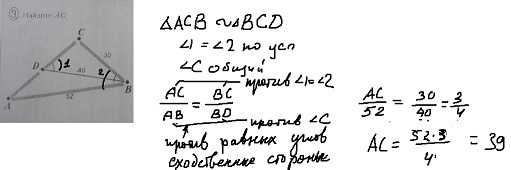 ③ Найдите AC
C
30
D
1
40
2
B
52
A
ΔACB ∾ ΔBCD
∠1 = ∠2 по усл
∠C общий
против ∠1=∠2
AC/AB = BC/BD
против ∠C
против равных углов
сходственные стороны
AC/52 = 30/40 = 3/4
AC = 52·3/4 = 39